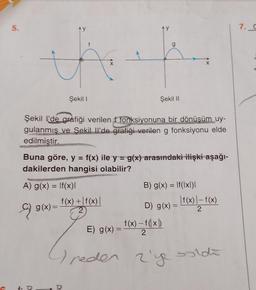 5.
7.
y
f
x
Şekil I
y
g
x
Şekil II
Şekil I'de grafiği verilen f fonksiyonuna bir dönüşüm uy-
gulanmış ve Şekil II'de grafiği verilen g fonksiyonu elde
edilmiştir.
Buna göre, y = f(x) ile y = g(x) arasındaki ilişki aşağı-
dakilerden hangisi olabilir?
A) g(x) = |f(x)|
B) g(x) = |f(|x|)|
C) g(x) = f(x) + |f(x)| / 2
D) g(x) = |f(x)| – f(x) / 2
E) g(x) = f(x) – f(|x|) / 2
neden 2'ye